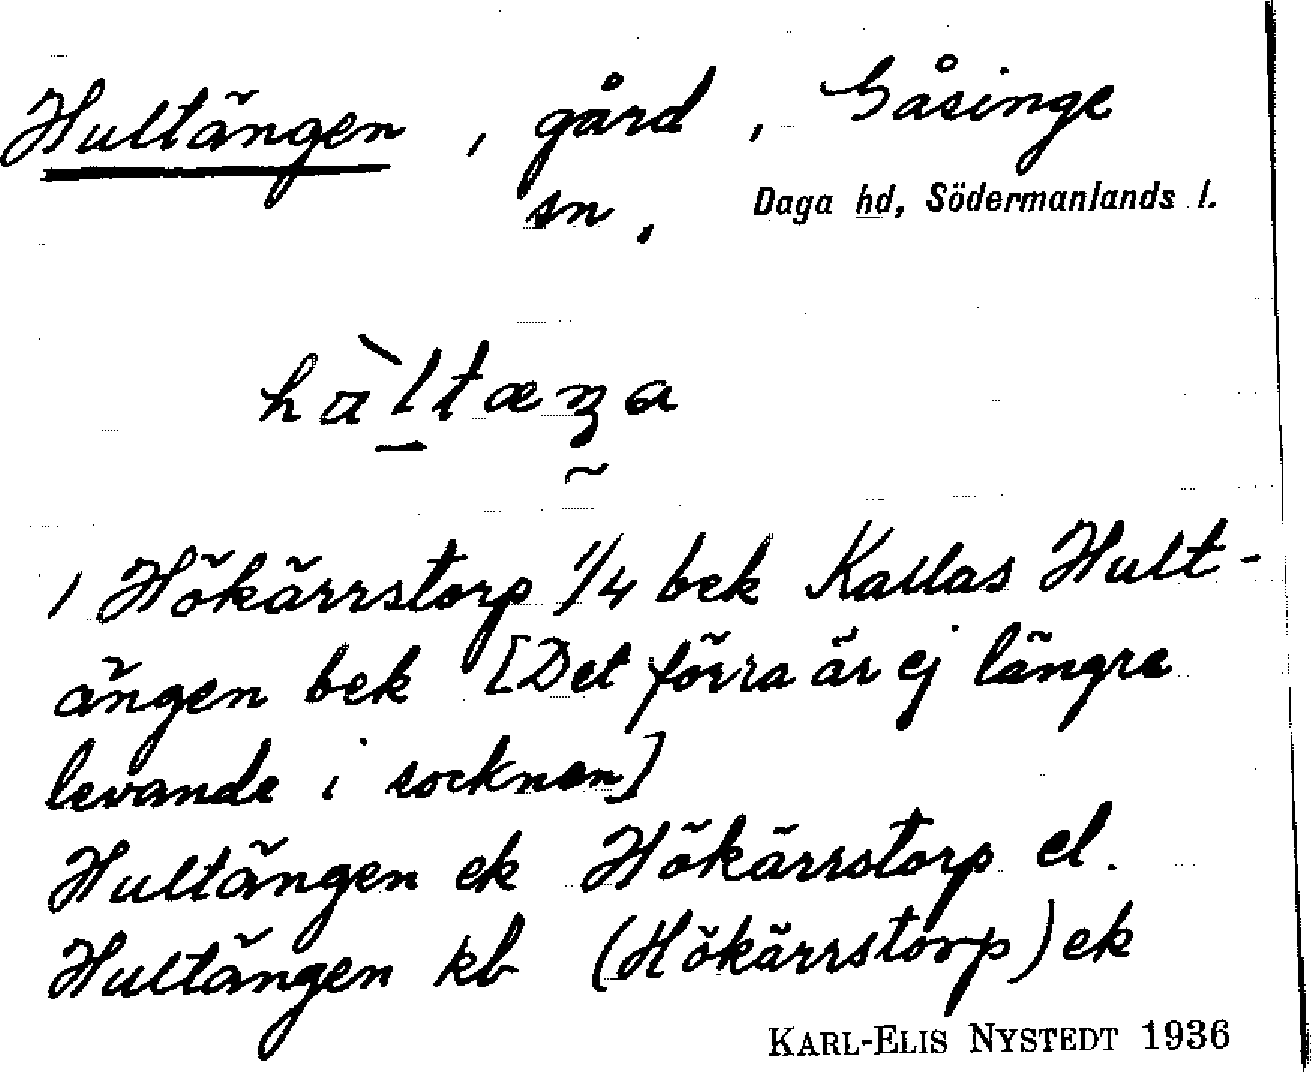 Hultängen, gård, Gåsinge
sn, Daga hd, Södermanlands l.
1 Hökärrstorp 1/4 bek Kallas Hult-
ängen bek [Det förra är ej längre
levande i socknen]
Hultängen ek Hökärrstorp el.
Hultängen kb (Hökärrstorp) ek
KARL-ELIS NYSTEDT 1936